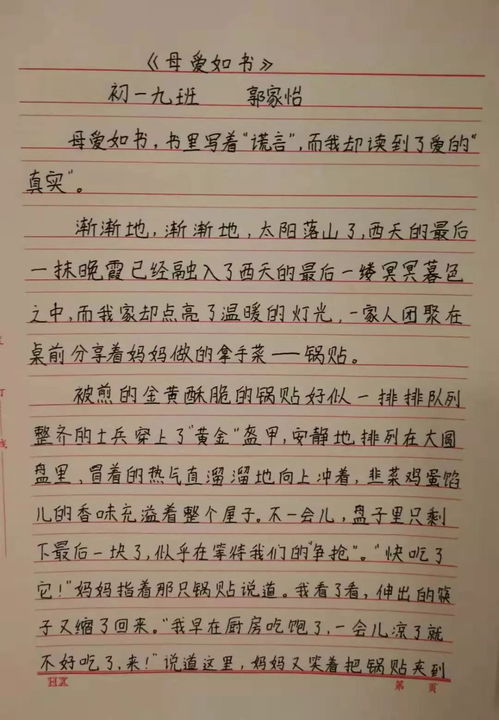 《母爱如书》
初一九班 郭家怡
母爱如书，书里写着“谎言”，而我却读到了爱的“
真实”。
渐渐地，渐渐地，太阳落山了，西天的最后
一抹晚霞已经融入了西天的最后一缕冥冥暮色
之中，而我家却点亮了温暖的灯光，一家人团聚在
桌前分享着妈妈做的拿手菜——锅贴。
被煎的金黄酥脆的锅贴好似一排排队列
整齐的士兵穿上了“黄金”盔甲，安静地排列在大圆
盘里、冒着的热气直溜溜地向上冲着，韭菜鸡蛋馅
儿的香味充溢着整个屋子。不一会儿，盘子里只剩
下最后一块了，似乎在等待我们的“争抢”。“快吃了
它！”妈妈指着那只锅贴说道。我看了看，伸出的筷
子又缩了回来。“我早在厨房吃饱了，一会儿凉了就
不好吃了，来！”说道这里，妈妈又笑着把锅贴夹到
HX 第 页